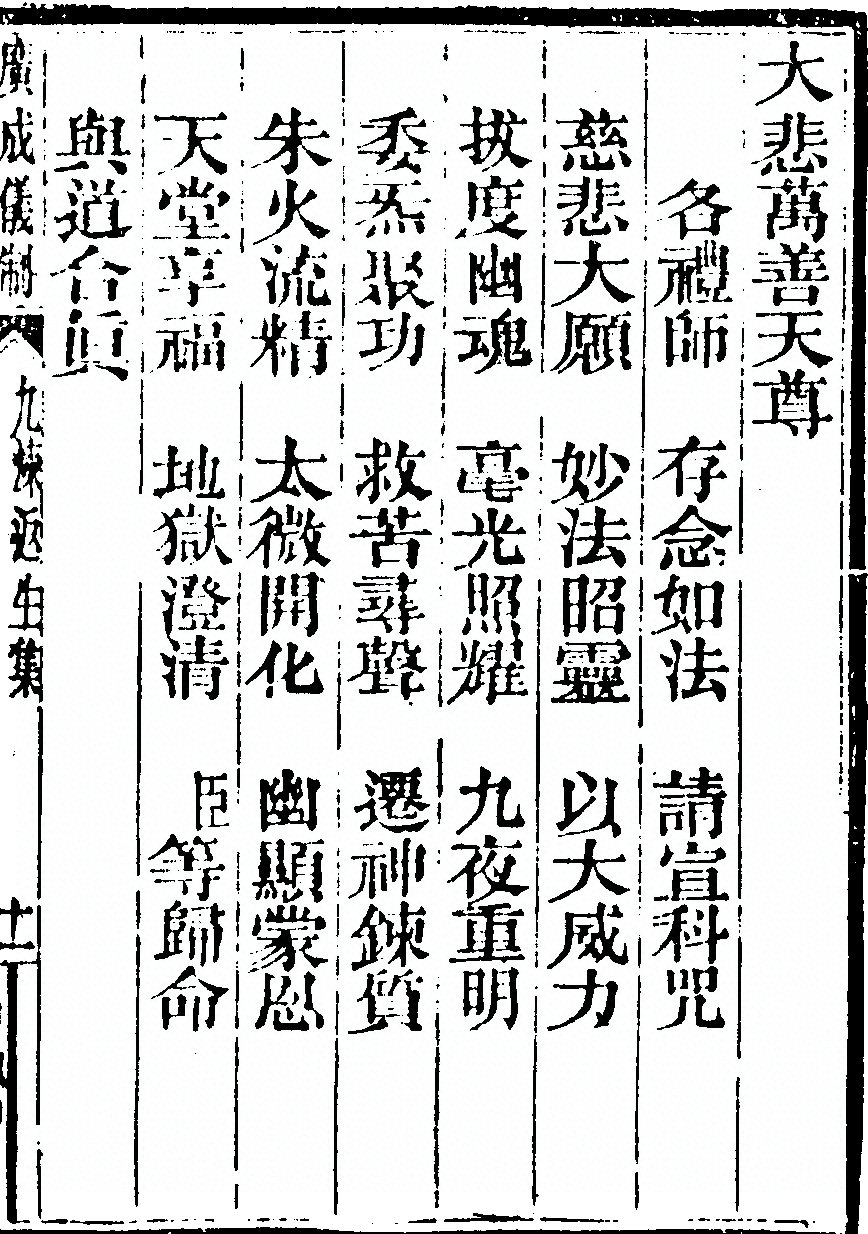 大悲萬善天尊
各禮師 存念如法 請宣科咒
慈悲大願 妙法昭靈 以大威力
拔度幽魂 毫光照耀 九夜重明
委炁聚功 救苦尋聲 遷神鍊質
朱火流精 太微開化 幽顯蒙恩
天堂享福 地獄澄清 臣等歸命
與道合真
廣成儀制 九煉返生集 十一